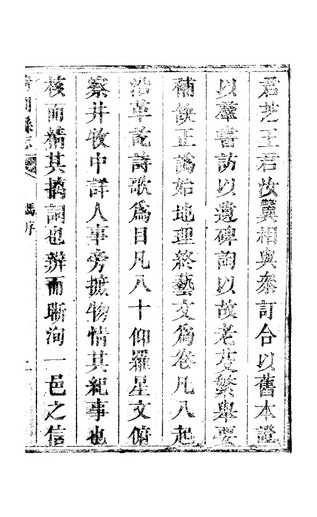 君芝王君汝翼相與叅訂合以舊本證
以羣書訪以遺碑詢以故老芟繁舉要
補飲正譌始地理終藝文為卷凡八起
沿革訖詩歌為目凡八十仰羅星文俯
察井牧中詳人事旁摭物情其紀事也
核而精其摛詞也辨而晰洵一邑之信
縣志
馮序